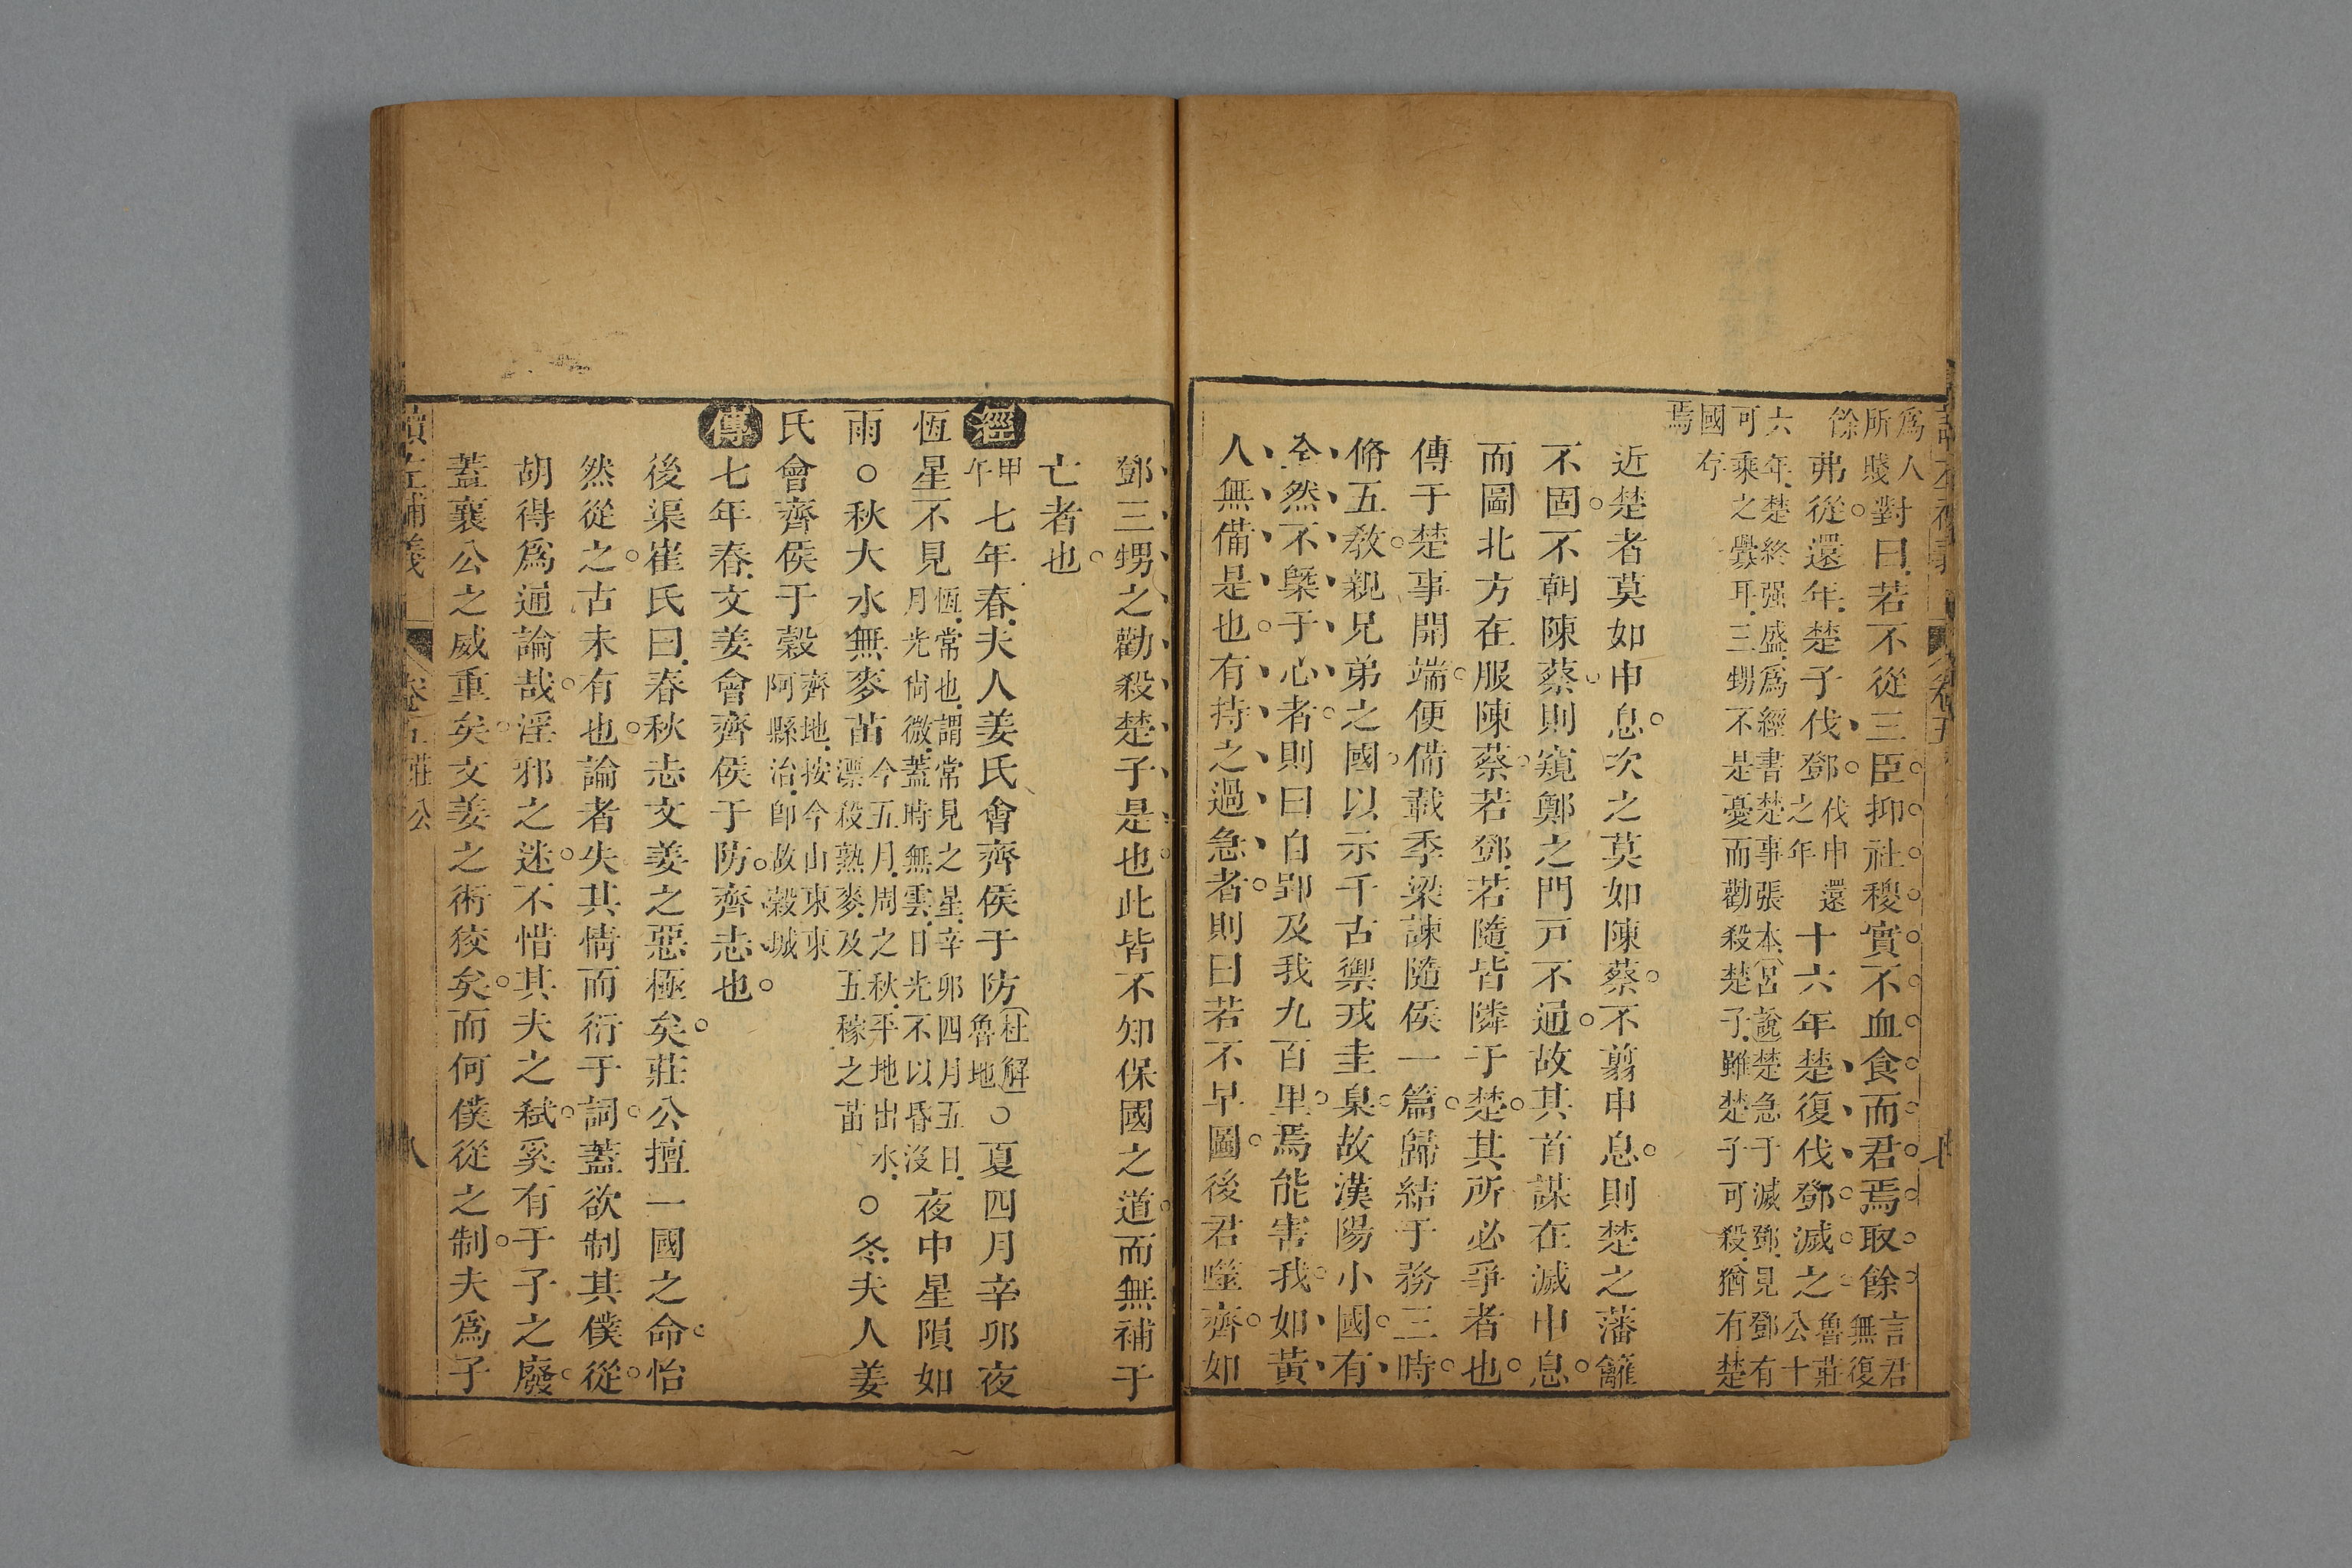 為人
所賤
對曰若不從三臣抑社稷實不血食而君焉取餘
言君
無復
餘
弗從還年楚子伐鄧
伐申還
之年
十六年楚復伐鄧滅之
魯莊
公十
六年楚終强盛為經書楚事張本宮說楚急于滅鄧見鄧有
可乘之釁耳三甥不是憂而勸殺楚子雖楚子可殺猶有楚
國存
焉
近楚者莫如申息次之莫如陳蔡不翦申息則楚之藩籬
不固不朝陳蔡則窺鄭之門戸不通故其首謀在滅申息
而圖北方在服陳蔡若鄧若隨皆隣于楚其所必爭者也
傳于楚事開端便備載季梁諫隨侯一篇歸結于務三時
脩五教親兄弟之國以示千古禦戎圭臬故漢陽小國有
全然不槩于心者則曰自郢及我九百里焉能害我如黃
人無備是也有持之過急者則曰若不早圖後君噬齊如
鄧三甥之勸殺楚子是也此皆不知保國之道而無補于
亡者也
經
甲
午
七年春夫人姜氏會齊侯于防
杜解
魯地
○夏四月辛卯夜
恆星不見
恆常也謂常見之星辛卯四月五日
月光尙微蓋時無雲日光不以昏沒
夜中星隕如
雨○秋大水無麥苗
今五月周之秋平地出水
漂殺熟麥及五稼之苗
○冬夫人姜
氏會齊侯于穀
齊地按今山東東
阿縣治卽故穀城
傳
七年春文姜會齊侯于防齊志也
後渠崔氏曰春秋志文姜之惡極矣莊公擅一國之命怡
然從之古未有也論者失其情而衍于詞蓋欲制其僕從
胡得為通論哉淫邪之迷不惜其夫之弒奚有于子之廢
蓋襄公之威重矣文姜之術狡矣而何僕從之制夫為子
讀左補義
卷五 莊公
八